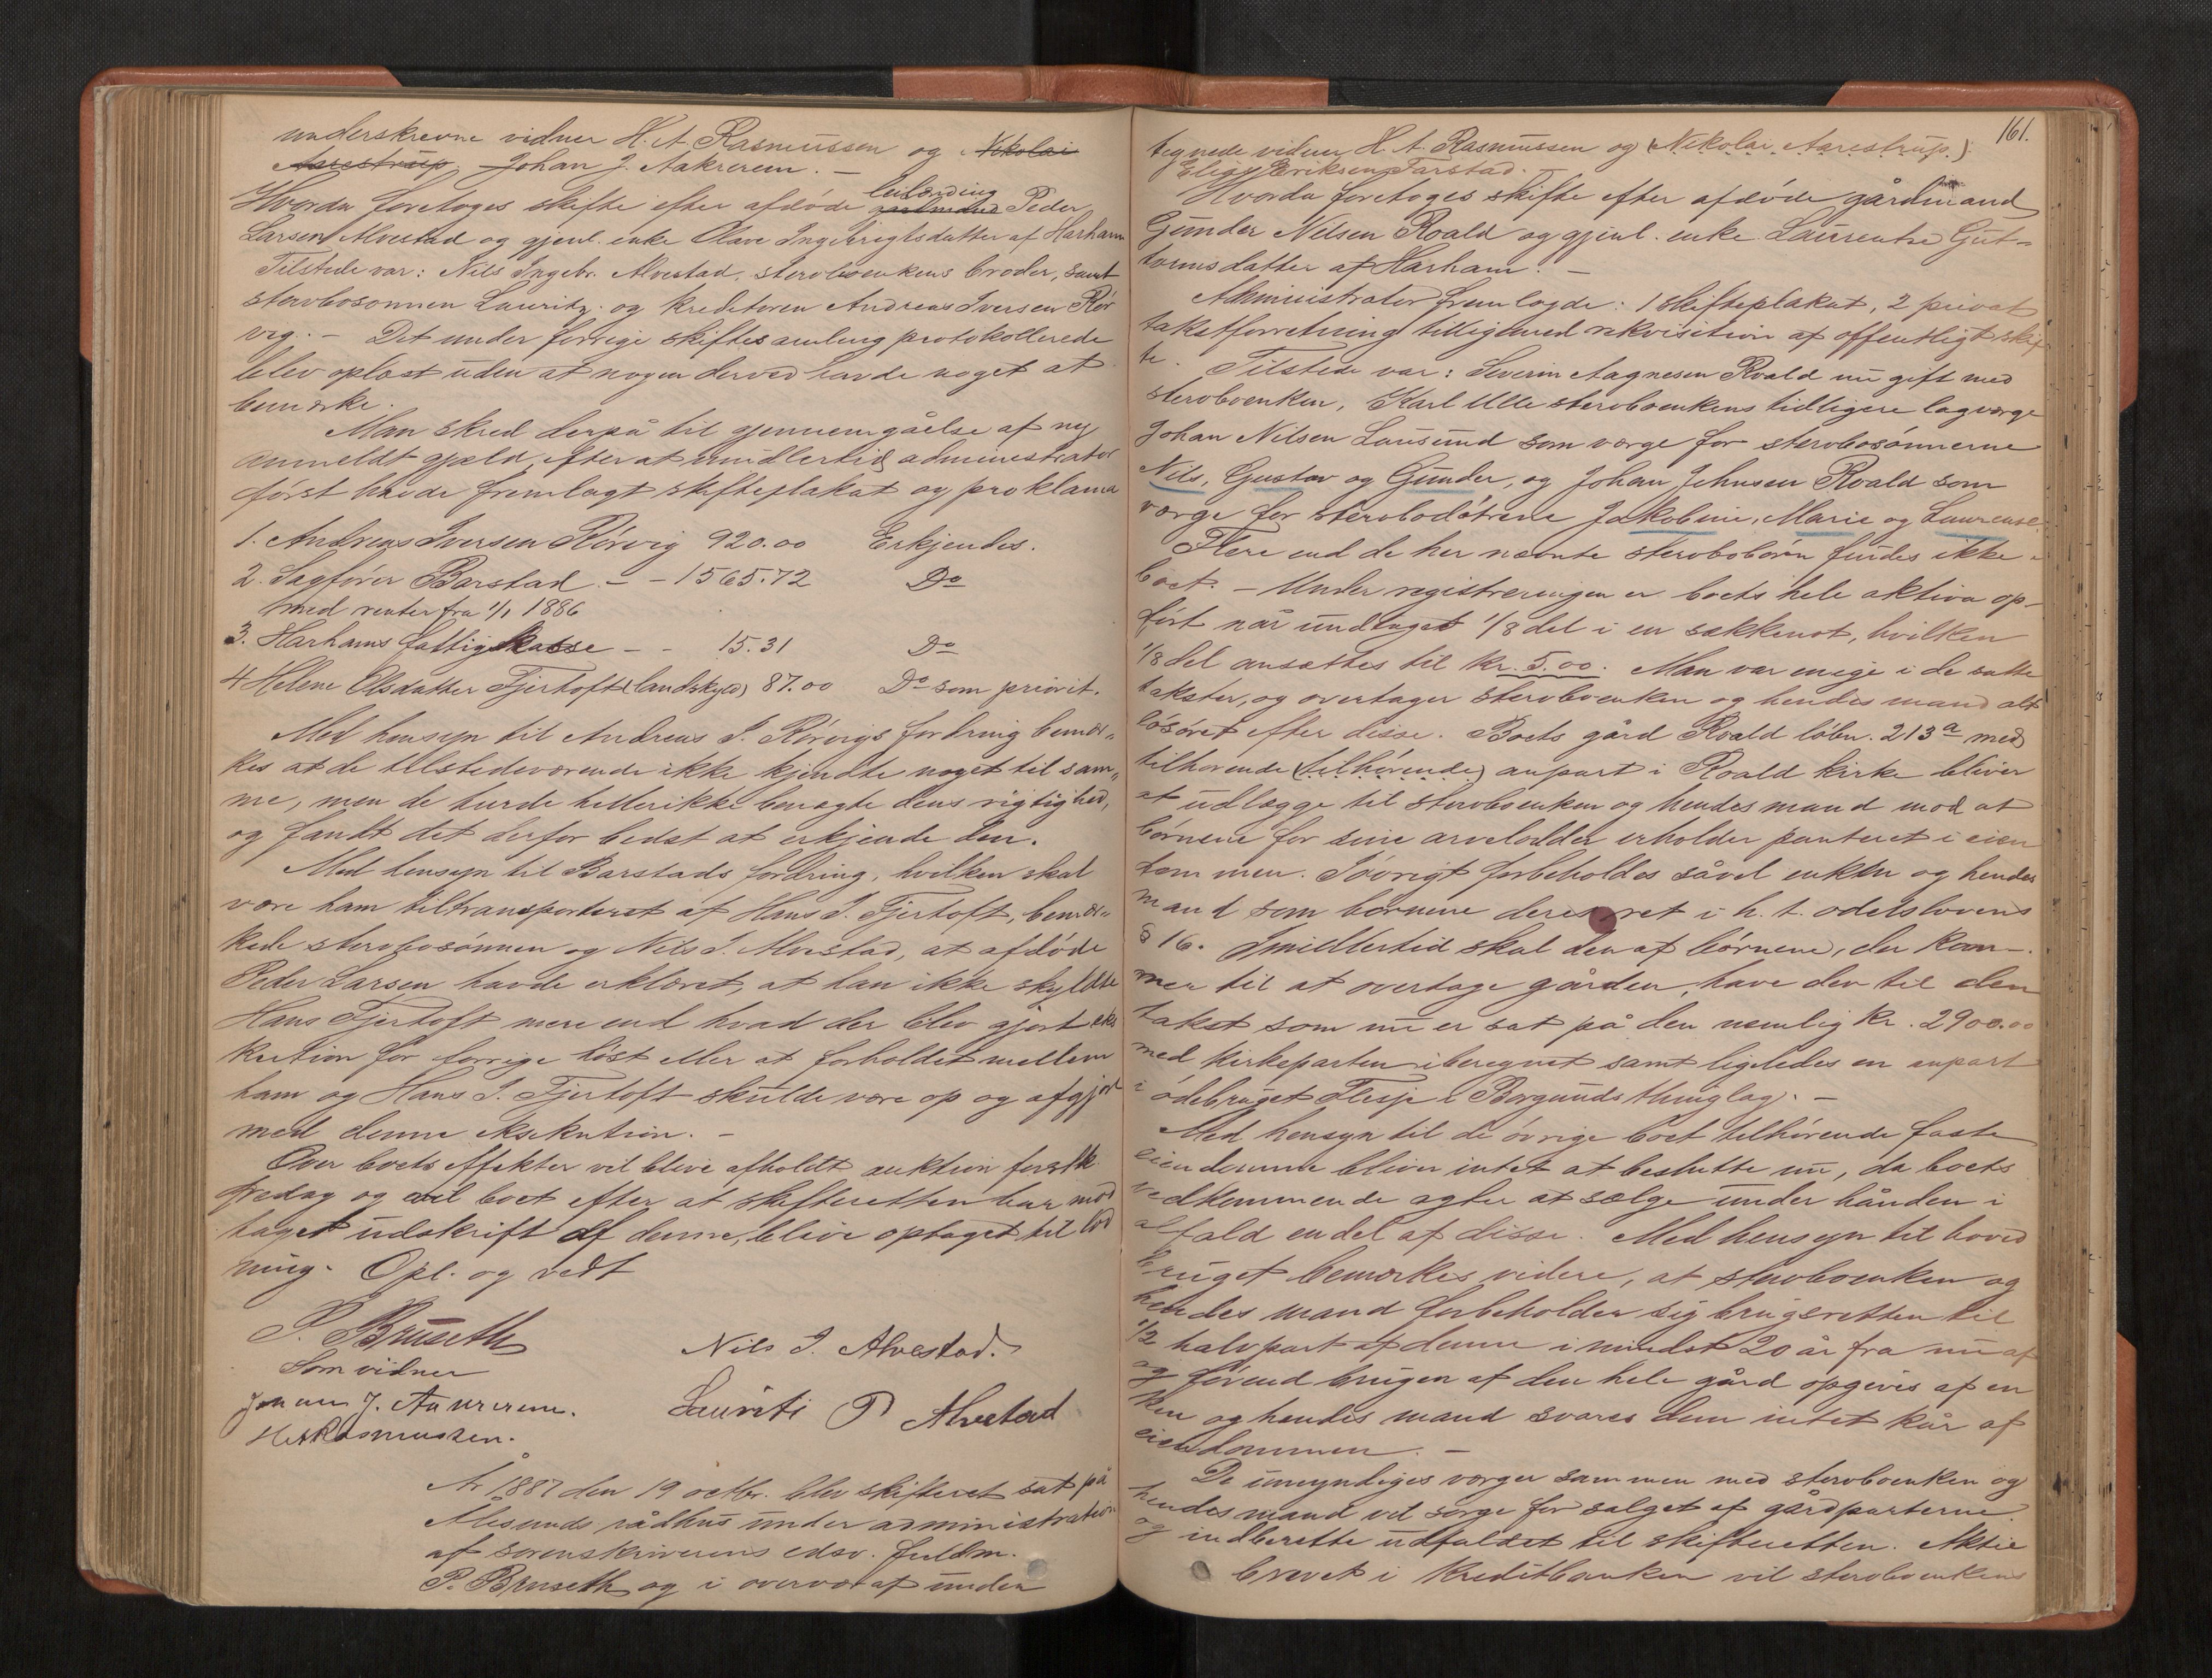 underskrevne vidner H. A. Rasmussen og Nikolai
Aarestrup, Johan J. Aakrerem. –
Hvorda foretoges skifte efter afdøde leilænding gardmand Peder
Larsen Alvestad og gjenl. enke Olave Ingebrigtsdatter af Harham
Tilstede var: Nils Ingebr. Alvestad, stervboenkens broder, samt
stervbosønnen Lauritz. og kreditoren Andreas Iversen Rør
vig. – Det under forrige skiftesamling protokollerede
blev oplæst uden at nogen derved havde noget at
bemærke.
Man skred derpå til gjennemgåelse af ny
anmeldt gjæld, efter at imidlertid administrator
først havde fremlagt skifteplakat og proklama
1. Andreas Iversen Rørvig 920.00 Erkjendes.
2. Sagfører Barstad – – 1565.72 Do
med renter fra 1/1 1886
3. Harhams fattigkasse – – 15.31 Do
4 Helene Olsdatter Fjertoft (landskyld) 87.00 Do som priorit.
Med hensyn til Andreas I. Rørvigs fordring bemær„
kes at de tilstedeværende ikke kjendte noget til sam„
me, men de turde hellerikke benægte dens rigtighed,
og fandt det derfor bedst at erkjende den.
Med hensyn til Barstads fordring, hvilken skal
være ham tiltransporteret af Hans I. Fjertoft, bemær„
kede stervbosønnen og Nils I. Alvestad, at afdøde
Peder Larsen havde erklæret, at han ikke skyldte
Hans Fjertoft mere end hvad der blev gjort eks
kution for forrige høst eller at forholdet mellem
ham og Hans I. Fjertoft skulde være op og afgjort
med denne eksekution. –
Over boets effekter vil blive afholdt auktion førstk.
fredag og vil boet efter at skifteretten har mod
taget udskrift af denne, blive optaget til lod
ning. Opl. og vedt
P. Bruseth
Som vidner
Johan J. Aakrerem.
H A Rasmussen.
Nils I. Alvestad.
Lauriti P Alvestad
År 1887 den 19 octbr. blev skifteret sat på
Ålesunds rådhus under administration
af sorenskriverens edsv. fuldm.
P. Bruseth og i overvær af under
161.
tegnede vidner H. A. Rasmussen og (Nikolai Aarestrup)
Elias Eriksen Farstad.
Hvorda foretoges skifte efter afdøde gårdmand
Gunder Nilsen Roald og gjenl. enke Laurentse Gut-
tormsdatter af Harham. –
Administrator fremlagde: 1 skifteplakat, 2 privat
takstforretning tilligemed rekvisition af offentligt skif
te. Tilstede var: Severin Aagnesen Roald nu gift med
stervboenken, Karl Ulle stervboenkens tidligere lagværge
Johan Nilsen Lausund som værge for stervbosønnerne
Nils, Gustav og Gunder, og Johan Johnsen Roald som
værge for stervbodøtrene Jakobine, Marie og Laurense.
Flere end de her nævnte stervbobørn findes ikke i
boet. – Under registreringen er boets hele aktiva op-
ført når undtaget 1/8 del i en sækkenot, hvilken
1/8 del ansættes til kr. 5.00. Man var enige i de satte
takster, og overtager stervboenken og hendes mand alt
løsøret efter disse. Boets gård Roald løbn. 213a med
tilhørende (tilhørende) anpart i Roald kirke bliver
at udlægge til stervboenken og hendes mand mod at
børnene for sine arvelodder erholder panteret i eien
dommen. Iøvrigt forbeholdes såvel enken og hendes
mand som børnene deres ret i h. t. odelslovens
§ 16. Imidlertid skal den af børnene, der kom-
mer til at overtage gården, have den til den
takst som nu er sat på den nemlig kr. 2900.00
med kirkeparten iberegnet samt ligeledes en anpart
i ødebruget Flesje i Borgunds thinglag. –
Med hensyn til de øvrige boet tilhørende faste
eiendomme bliver intet at beslutte nu, da boets
vedkommende agter at sælge under hånden i
alfald endel af disse. Med hensyn til hoved
bruget bemærkes videre, at stervboenken og
hendes mand forbeholder sig brugsretten til
1/2 halvpart af denne i mindst 20 år fra nu af
og førend brugen af den hele gård opgives af en
ken og hendes mand svares dem intet kår af
eiendommen. –
De umyndiges værger sammen med stervboenken og
hendes mand vil sørge for salget af gårdparterne
og indberette udfaldet til skifteretten. Aktie
brevet i Kreditbanken vil stervboenkens